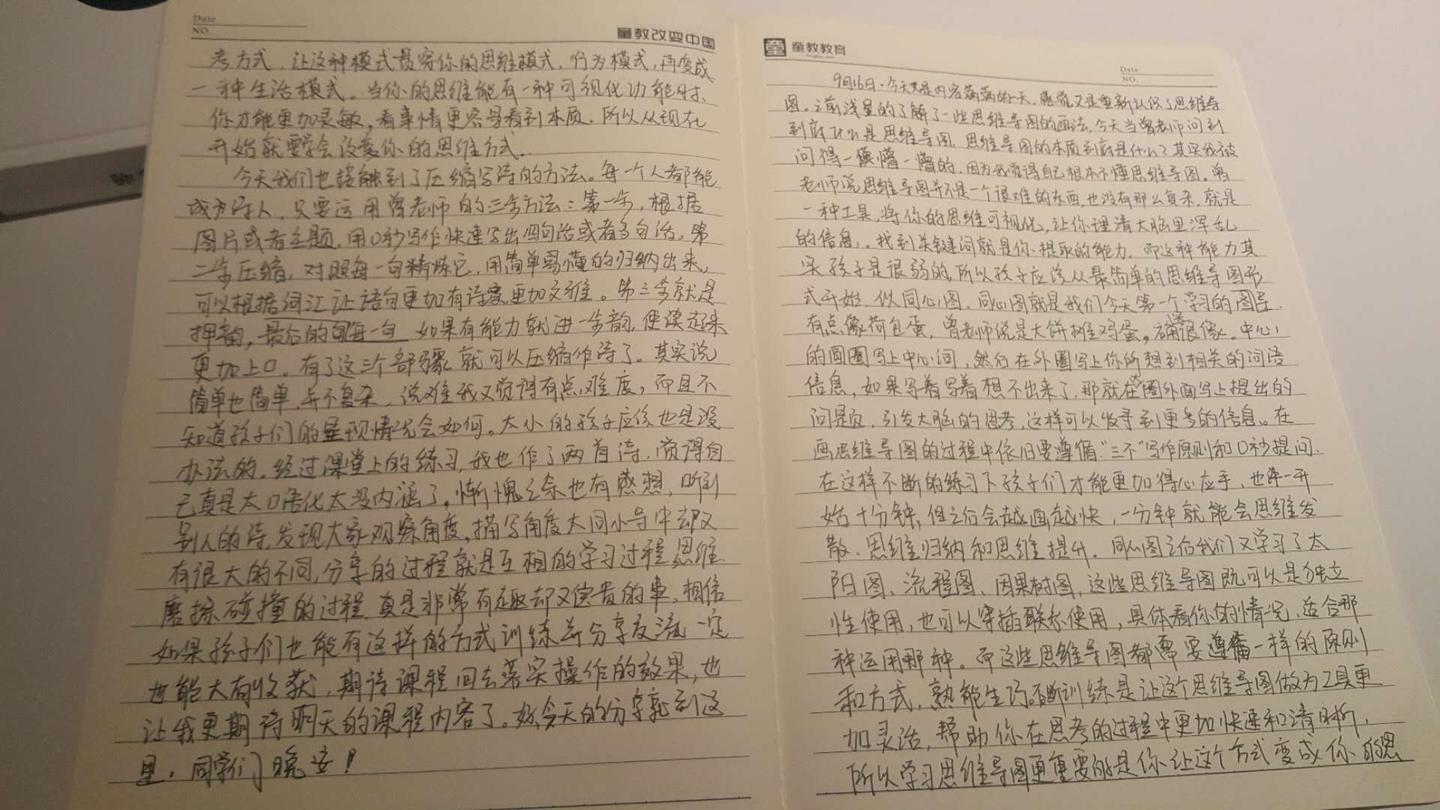 Date
NO.
童教改变中国
考方式，让这种模式贯穿你的思维模式，行为模式，再变成
一种生活模式。当你的思维能有一种可视化功能时、
你才能更加灵敏，看事情更容易看到本质。所以从现在
开始就要学会设置你的思维方式.
今天我们也接触到了压缩写诗的方法。每一个人都能
成为诗人，只要运用曾老师的三步方法：第一步，根据
图片或者主题，用0秒写作快速写出四句话或者多句话。第
二步压缩，对照每一句精炼它，用简单易懂的归纳出来，
可以根据词汇让语句更加有诗意更加文雅。第三步就是
押韵，最后的每一句 如果有能力就进一步韵，使读起来
更加上口。有了这三个部骤就可以压缩作诗了。其实说
简单也简单，并不复杂，说难我又觉得有点难度，而且不
知道孩子们的呈现情况会如何。太小的孩子应该也是没
办法的。经过课堂上的练习，我也作了两首诗，觉得自
己真是太口语化太没内涵了。惭愧之余也有感想，听到
别人的诗，发现大家观察角度，描写角度大同小异中却又
有很大的不同，分享的过程就是互相的学习过程，思维
磨擦碰撞的过程，真是非常有趣却又宝贵的事，相信
如果孩子们也能有这样的方式训练并分享交流一定
也能大有收获，期待课程回去落实操作的效果，也
让我更期待明天的课程内容了。好，今天的分享就到这
里。同学们晚安！
童 童教教育
Date
NO.
9月16日，今天是内容满满的一天，感觉又是重新认识了思维导
图。之前浅显的了解了一些思维导图的画法，今天当曾老师问到
到底什么是思维导图，思维导图的本质到底是什么？其实我被
问得一懵一懵的，因为我觉得自己根本不懂思维导图。曾
老师说思维导图并不是一个很难的东西，也没有那么复杂，就是
一种工具，将你的思维可视化，让你理清大脑里浑乱
的信息，。找到关键词就是你提取的能力，而这种能力其
实孩子是很弱的，所以孩子应该从最简单的思维导图形
式开始，似同心图，同心图就是我们今天第一个学习的图，
有点像荷包蛋，曾老师说是大饼摊鸡蛋，确很像。中心
的圆圈写上中心词，然后在外圈写上你所想到相关的词语
信息，如果写着写着想不出来了，那就在圈外面写上提出的
问题，引发大脑的思考，这样可以发寻到更多的信息。在
画思维导图的过程中依旧要遵循“三不”写作原则和0秒提问.
在这样不断的练习下孩子们才能更加得心应手，也许一开
始十分钟，但之后会越画越快，一分钟就能会思维发
散、思维归纳和思维提升。同心图之后我们又学习了太
阳图、流程图、因果树图，这些思维导图既可以是独立
性使用，也可以穿插联系使用，具体看你的情况，适合那
种运用那种。而这些思维导图都需要遵循一样的原则
和方式，熟能生巧。不断训练是让这个思维导图做为工具更
加灵活，帮助你在思考的过程中更加快速和清晰，
所以学习思维导图更重要的是你让这个方式变成你的思